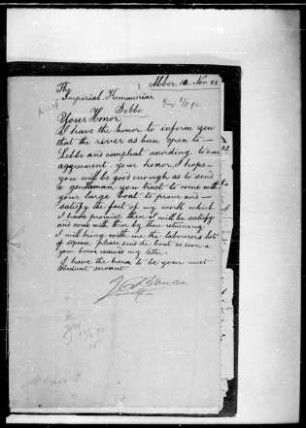 Abbor 12 Nov 92
The
Imperial Kommissioner
Sebbe
Your Honor
I have the honor to inform you
that the river as been open to
Sebbe and compleat acording to our
aggrement. your honor I hope
you will be good enough as to send
a gentleman you trust to come with
your large boat to prove and
satisfy the fact of my work which
I have promise then I will be satify
and come with them by there returning
I will bring with me the labourers lots
of expense please send the boat as soon a
your honor receive my letter.
I have the honor to be your most
Obedient servant